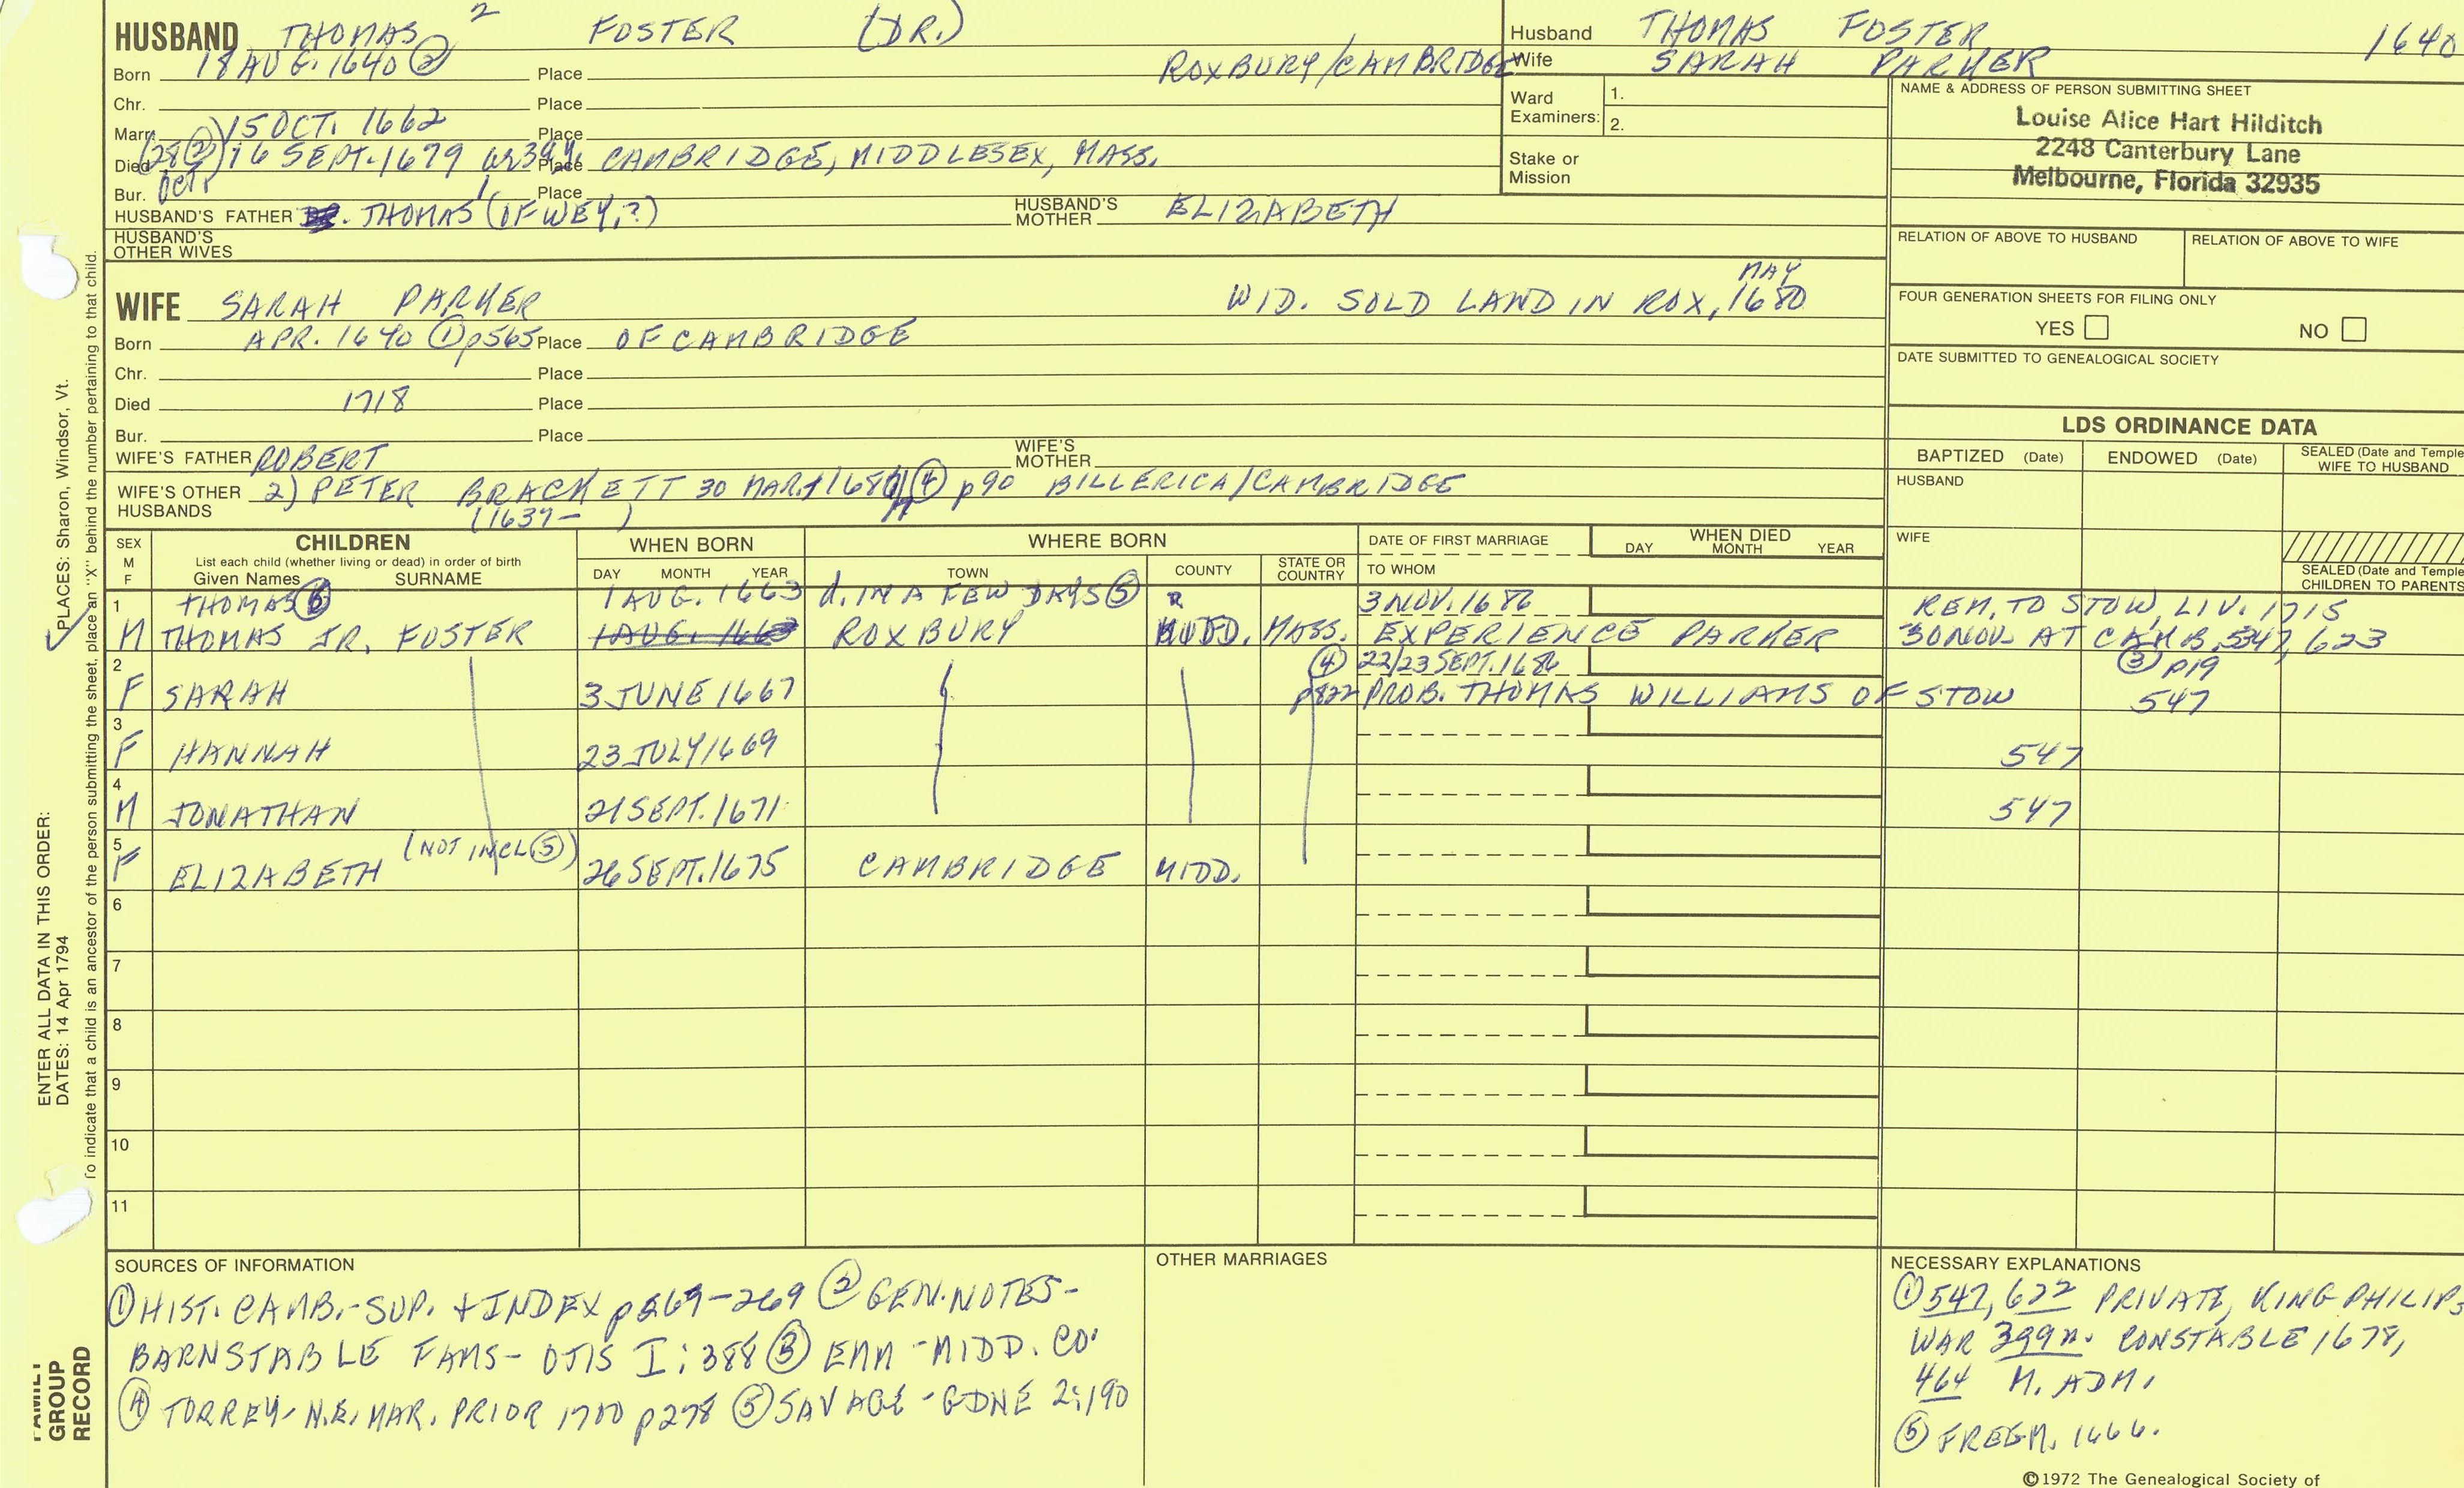 HUSBAND THOMAS 2 FOSTER (DR.)
Born 18 AUG. 1640 ② Place ROXBURY/CAMBRIDGE
Chr. Place
Marr. 15 OCT. 1662 Place
Died (28 ② OCT) 16 SEPT. 1679 Place CAMBRIDGE, MIDDLESEX, MASS.
Bur. Place
HUSBAND'S FATHER THOMAS 1 (OF WEY, ?) HUSBAND'S MOTHER ELIZABETH
HUSBAND'S OTHER WIVES
Husband THOMAS FOSTER 1640
Wife SARAH PARKER
Ward Examiners: 1.
2.
Stake or Mission
NAME & ADDRESS OF PERSON SUBMITTING SHEET
Louise Alice Hart Hilditch
2248 Canterbury Lane
Melbourne, Florida 32935
RELATION OF ABOVE TO HUSBAND RELATION OF ABOVE TO WIFE
FOUR GENERATION SHEETS FOR FILING ONLY
YES NO
DATE SUBMITTED TO GENEALOGICAL SOCIETY
WIFE SARAH PARKER WID. SOLD LAND IN ROX, MAY 1680
Born APR. 1640 ① p565 Place OF CAMBRIDGE
Chr. Place
Died 1718 Place
Bur. Place
WIFE'S FATHER ROBERT WIFE'S MOTHER
WIFE'S OTHER HUSBANDS 2) PETER BRACKETT 30 MAR. ④ p90 BILLERICA/CAMBRIDGE
(1637- )
LDS ORDINANCE DATA
BAPTIZED (Date) ENDOWED (Date) SEALED (Date and Temple
WIFE TO HUSBAND
HUSBAND
WIFE
SEALED (Date and Temple
CHILDREN TO PARENTS
SEX M F
CHILDREN
List each child (whether living or dead) in order of birth
Given Names SURNAME
WHEN BORN
DAY MONTH YEAR
WHERE BORN
TOWN COUNTY STATE OR COUNTRY
DATE OF FIRST MARRIAGE
TO WHOM
WHEN DIED
DAY MONTH YEAR
1 THOMAS 1 AUG. 1663 d. IN A FEW DAYS ⑤ 3 NOV. 1686 REM. TO STOW, LIV. 1715
M THOMAS JR. FOSTER 1 AUG. 1663 ROXBURY MASS. EXPERIENCE PARKER 30 NOV. AT CAMB. 547, 623
2 ④ 22/23 SEPT. 1686 ③ p19
F SARAH 3 JUNE 1667 p822 PROB. THOMAS WILLIAMS OF STOW 547
3
F HANNAH 23 JULY 1669 547
4
M JONATHAN 21 SEPT. 1671 547
5 (NOT INCL ⑤)
F ELIZABETH 26 SEPT. 1675 CAMBRIDGE MIDD.
6
7
8
9
10
11
SOURCES OF INFORMATION
① HIST. CAMB. - SUP. + INDEX ② GEN. NOTES -
BARNSTABLE FAMS - OTIS I: 388 ③ EMM - MIDD. CO.
④ TORREY - N.E. MAR. PRIOR 1700 p278 ⑤ SAVAGE - GDNE 2:190
OTHER MARRIAGES
NECESSARY EXPLANATIONS
① 547, 622 PRIVATE, KING PHILIPS
WAR 399n. CONSTABLE 1678,
464 M. ADM.
⑤ FREEM. 1666.
©1972 The Genealogical Society of
ENTER ALL DATA IN THIS ORDER:
DATES: 14 Apr 1794 PLACES: Sharon, Windsor, Vt.
To indicate that a child is an ancestor of the person submitting the sheet, place an "X" behind the number pertaining to that child.
FAMILY
GROUP
RECORD